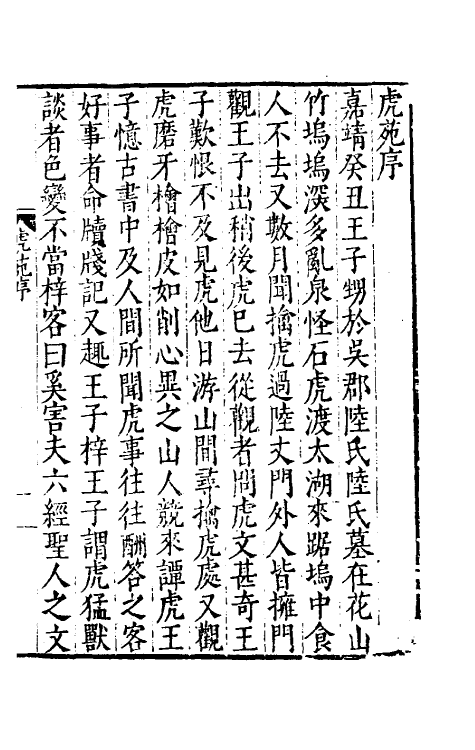 虎苑序
嘉靖癸丑王子甥於吳郡陸氏陸氏墓在花山
竹塢塢深多亂泉怪石虎渡太湖來踞塢中食
人不去又數月聞擒虎過陸丈門外人皆擁門
觀王子出稍後虎已去從觀者問虎文甚奇王
子歎恨不及見虎他日游山間尋擒虎處又觀
虎磨牙檜檜皮如削心異之山人競來譚虎王
子憶古書中及人間所聞虎事往往酬答之客
好事者命牘牋記又趣王子梓王子謂虎猛獸
談者色變不當梓客曰奚害夫六經聖人之文
虎苑序
一